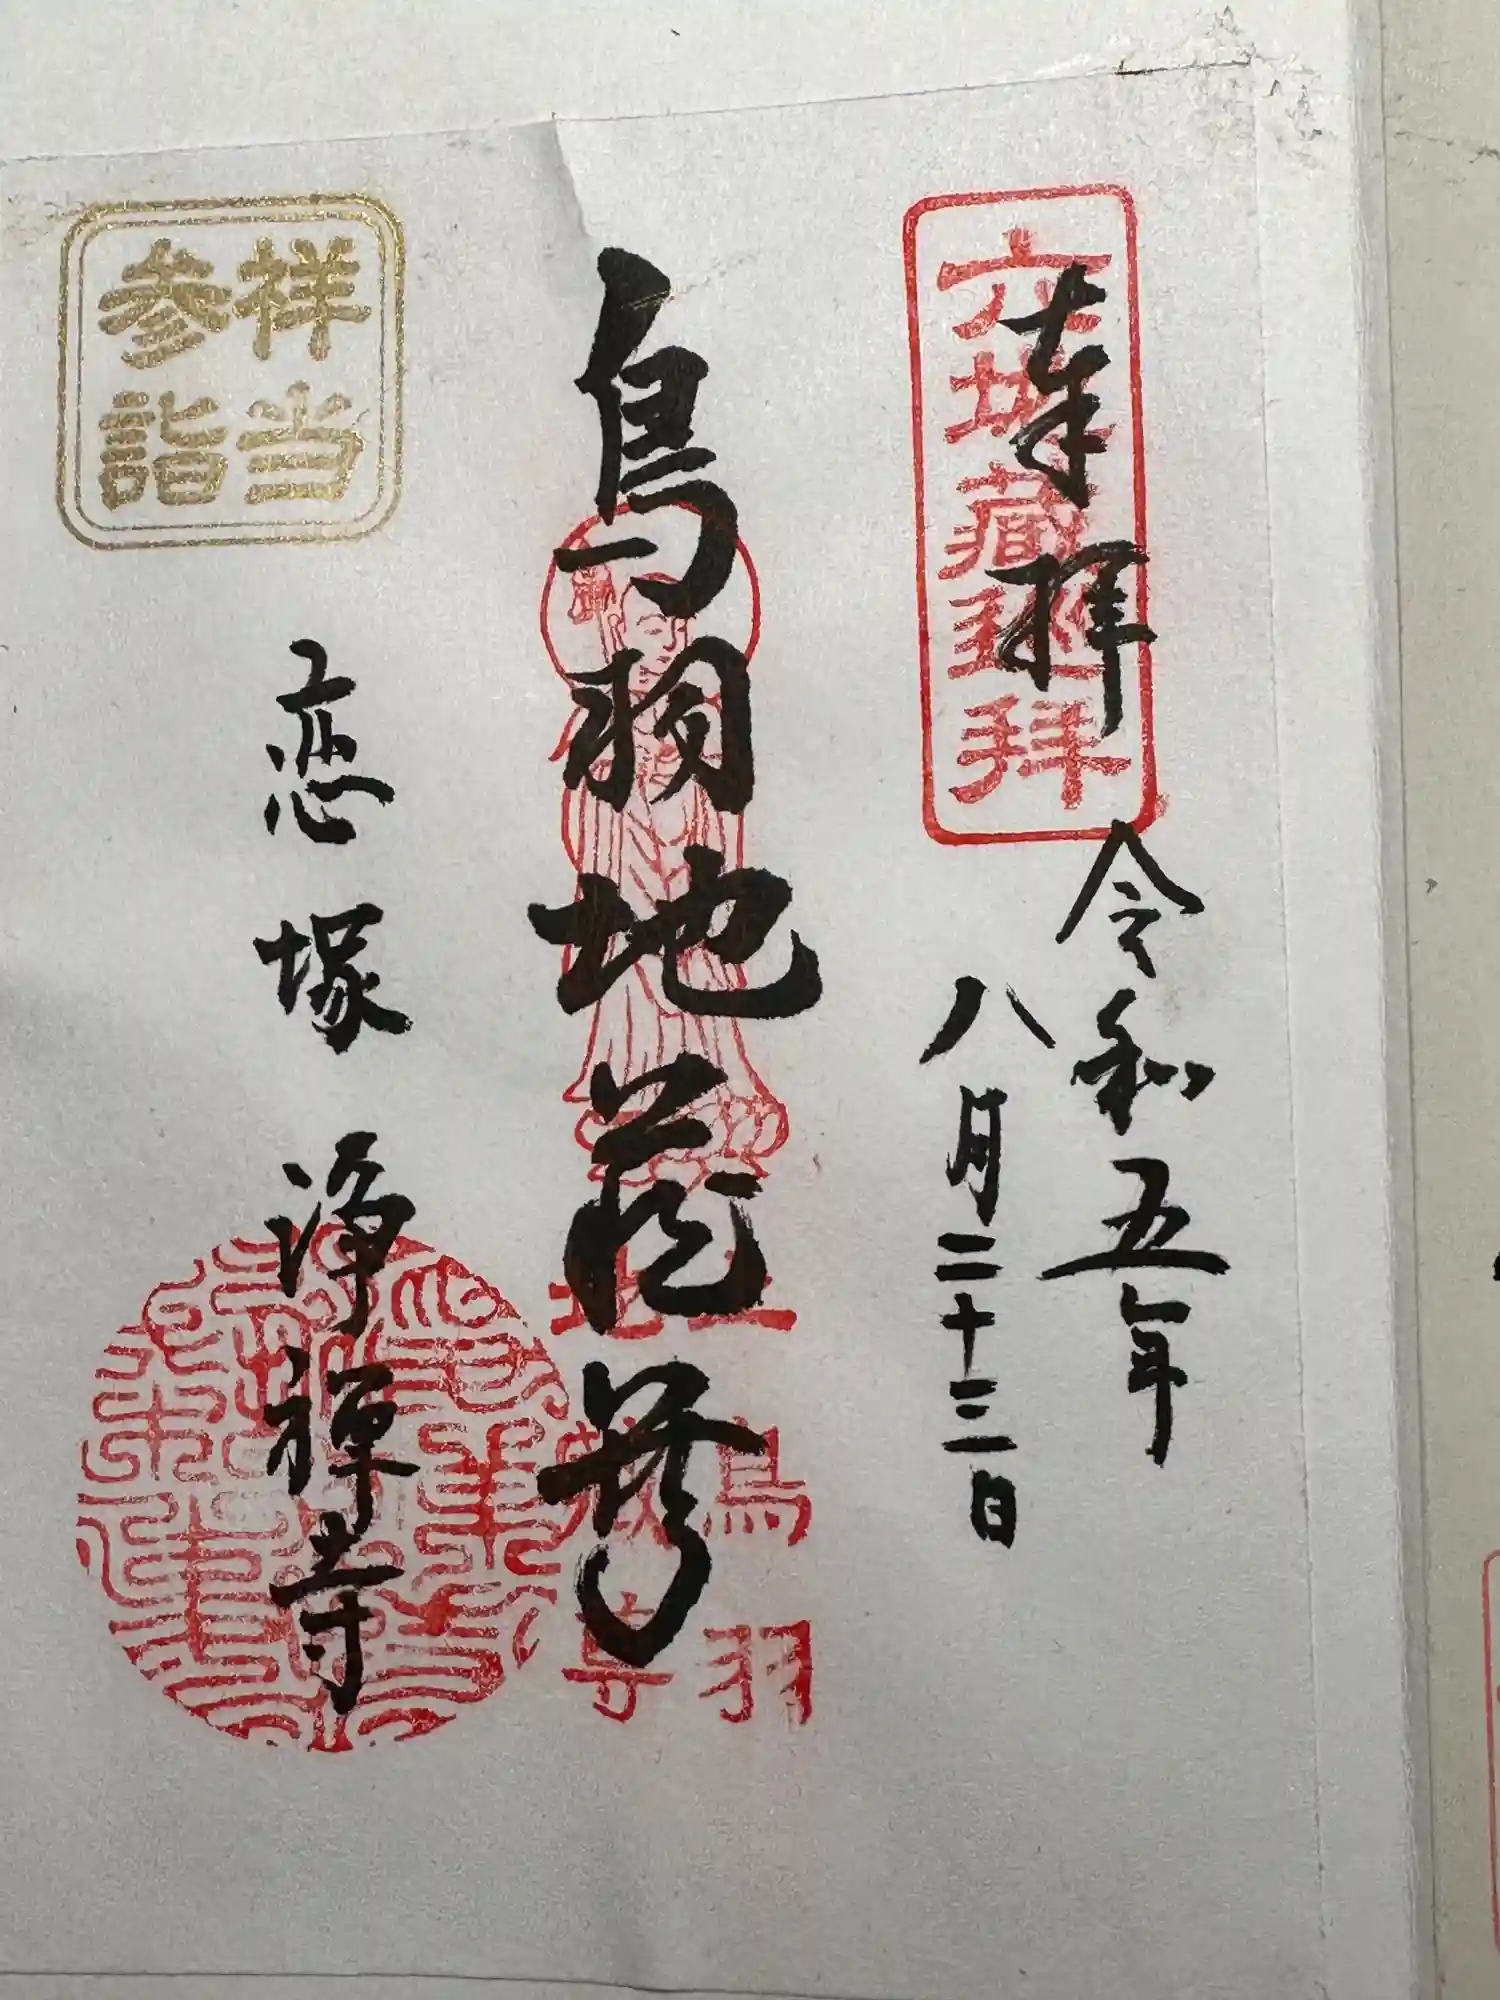 奉拝
六地藏巡拜
令和五年
八月二十三日
鳥羽地蔵尊
鳥羽
地蔵尊
恋塚浄禅寺
祥当
参詣